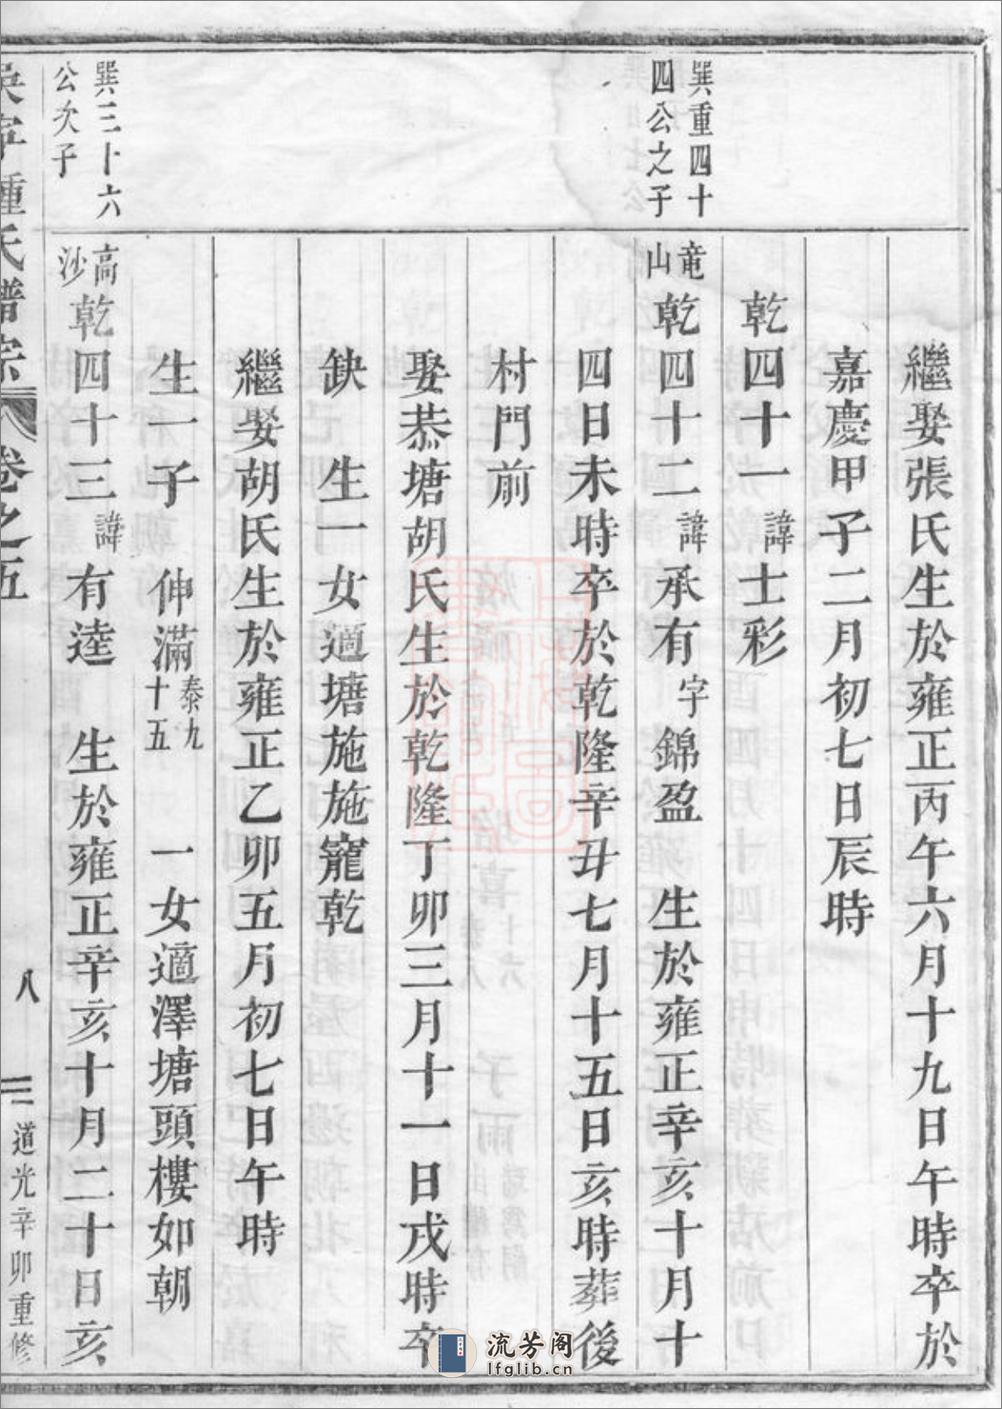 繼娶張氏生於雍正丙午六月十九日午時卒於
嘉慶甲子二月初七日辰時
乾四十一諱士彩
巽重四十
四公之子
竜山乾四十二諱承有字錦盈 生於雍正辛亥十月十
四日未時卒於乾隆辛丑七月十五日亥時葬後
村門前
娶恭塘胡氏生於乾隆丁卯三月十一日戌時卒
缺 生一女適塘施施寵乾
繼娶胡氏生於雍正乙卯五月初七日午時
生一子 伸滿泰九十五 一女適澤塘頭樓如朝
巽三十六
公次子
高沙乾四十三諱有逵 生於雍正辛亥十月二十日亥
氏譜宗 卷之五 八 道光辛卯重修
流芳阁
lfglib.cn